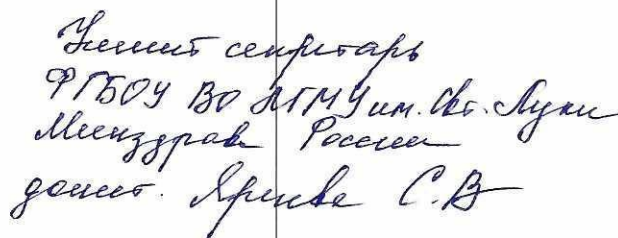 Ученый секретарь
ФГБОУ ВО ЛГМУ им. Свт. Луки
Минздрава России
доцент. С.В